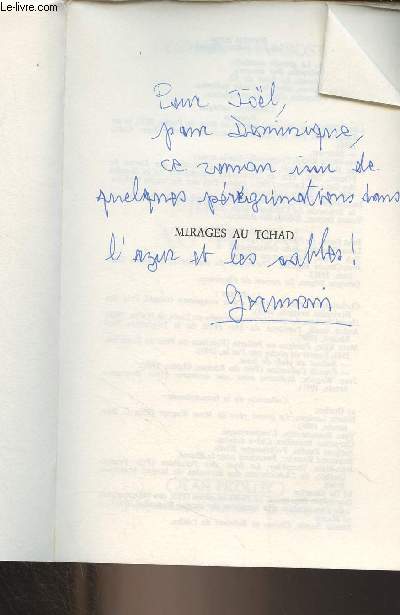 Le-livre.com
Pour Joël,
pour Dominique,
ce roman issu de
quelques pérégrinations dans
MIRAGES AU TCHAD
l'azur et les sables !
Germain